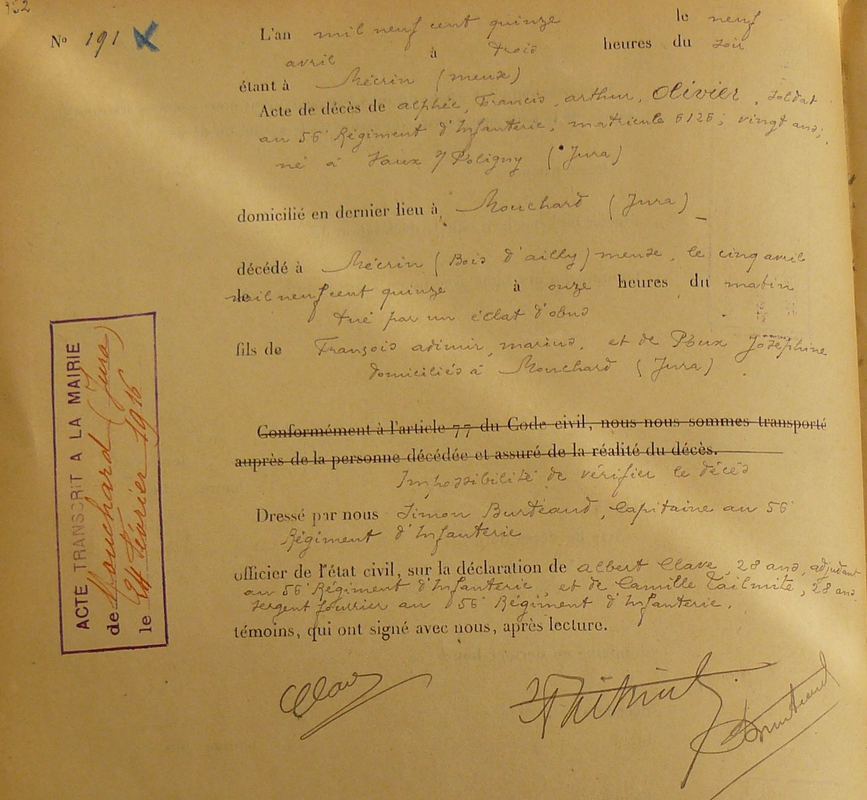 352
N° 191
L'an mil neuf cent quinze le neuf
avril à trois heures du soir
étant à Mécrin (Meuse)
Acte de décès de Alphée, Francis, Arthur, Olivier, soldat
au 56e Régiment d'Infanterie, matricule 6126; vingt ans;
né à Vaux s/ Poligny (Jura)
domicilié en dernier lieu à, Mouchard (Jura)
décédé à Mécrin (Bois d'Ailly) Meuse, le cinq avril
mil neuf cent quinze à onze heures du matin
tué par un éclat d'obus
fils de François marius, et de Joséphine
domiciliés à Mouchard (Jura)
Conformément à l'article 77 du Code civil, nous nous sommes transporté
auprès de la personne décédée et assuré de la réalité du décès.
Impossibilité de vérifier le décès
Dressé par nous Simon Burtéaud, Capitaine au 56e
Régiment d'Infanterie
officier de l'état civil, sur la déclaration de Albert Clave, 28 ans, adjudant
au 56e Régiment d'Infanterie, et de Camille 28 ans
sergent fourrier au 56e Régiment d'Infanterie,
témoins, qui ont signé avec nous, après lecture.
Clave
ACTE TRANSCRIT A LA MAIRIE
de Mouchard (Jura)
le 24 février 1916